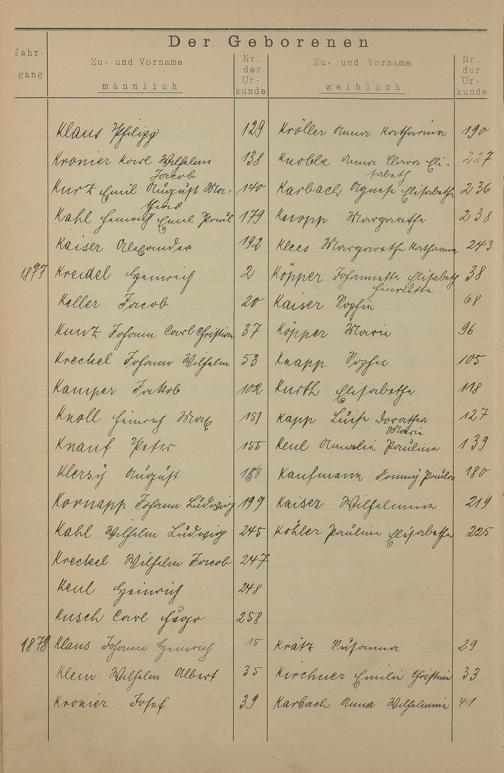 Der Geborenen
Jahr-
gang
Zu- und Vorname
männlich
Nr.
der
Ur-
kunde
Zu- und Vorname
weiblich
Nr.
der
Ur-
kunde
Klaus Philipp 129 Kröller Anna Katharina 190
Kromer Karl Wilhelm Jacob 138 Knobla Anna Clara Eli-
sabeth 227
Kurz Emil August Ma-
thias 140 Karbach Agnes Elisabetha 236
Kahl Heinrich Emil Paul 179 Knopp Margaretha 238
Kaiser Alexander 192 Klees Margaretha Katharina 243
1877 Kreidel Heinrich 2 Köpper Johannetta Elisabeth
Henriette 38
Keller Jacob 20 Kaiser Sophie 68
Kunz Johann Carl Christian 37 Köpper Maria 96
Kreckel Johann Wilhelm 53 Knapp Sophie 105
Kamper Jakob 102 Kurth Elisabetha 118
Knoll Heinrich Max 151 Kapp Luise Dorothea
Maria 127
Knauf Peter 155 Keul Amalie Pauline 139
August Kaufmann Paula 180
Kornapp Johann Ludwig 199 Kaiser Wilhelmine 219
Kahl Wilhelm Ludwig 245 Köhler Pauline Elisabetha 225
Kreckel Wilhelm Jacob 247
Keul Heinrich 248
Kusch Carl Hugo 258
1878 Klaus Johann Heinrich 15 Krätz Susanna 29
Klein Wilhelm Albert 35 Kirchner Emilie Christine 33
Kromer Josef 39 Karbach Anna Wilhelmine 41